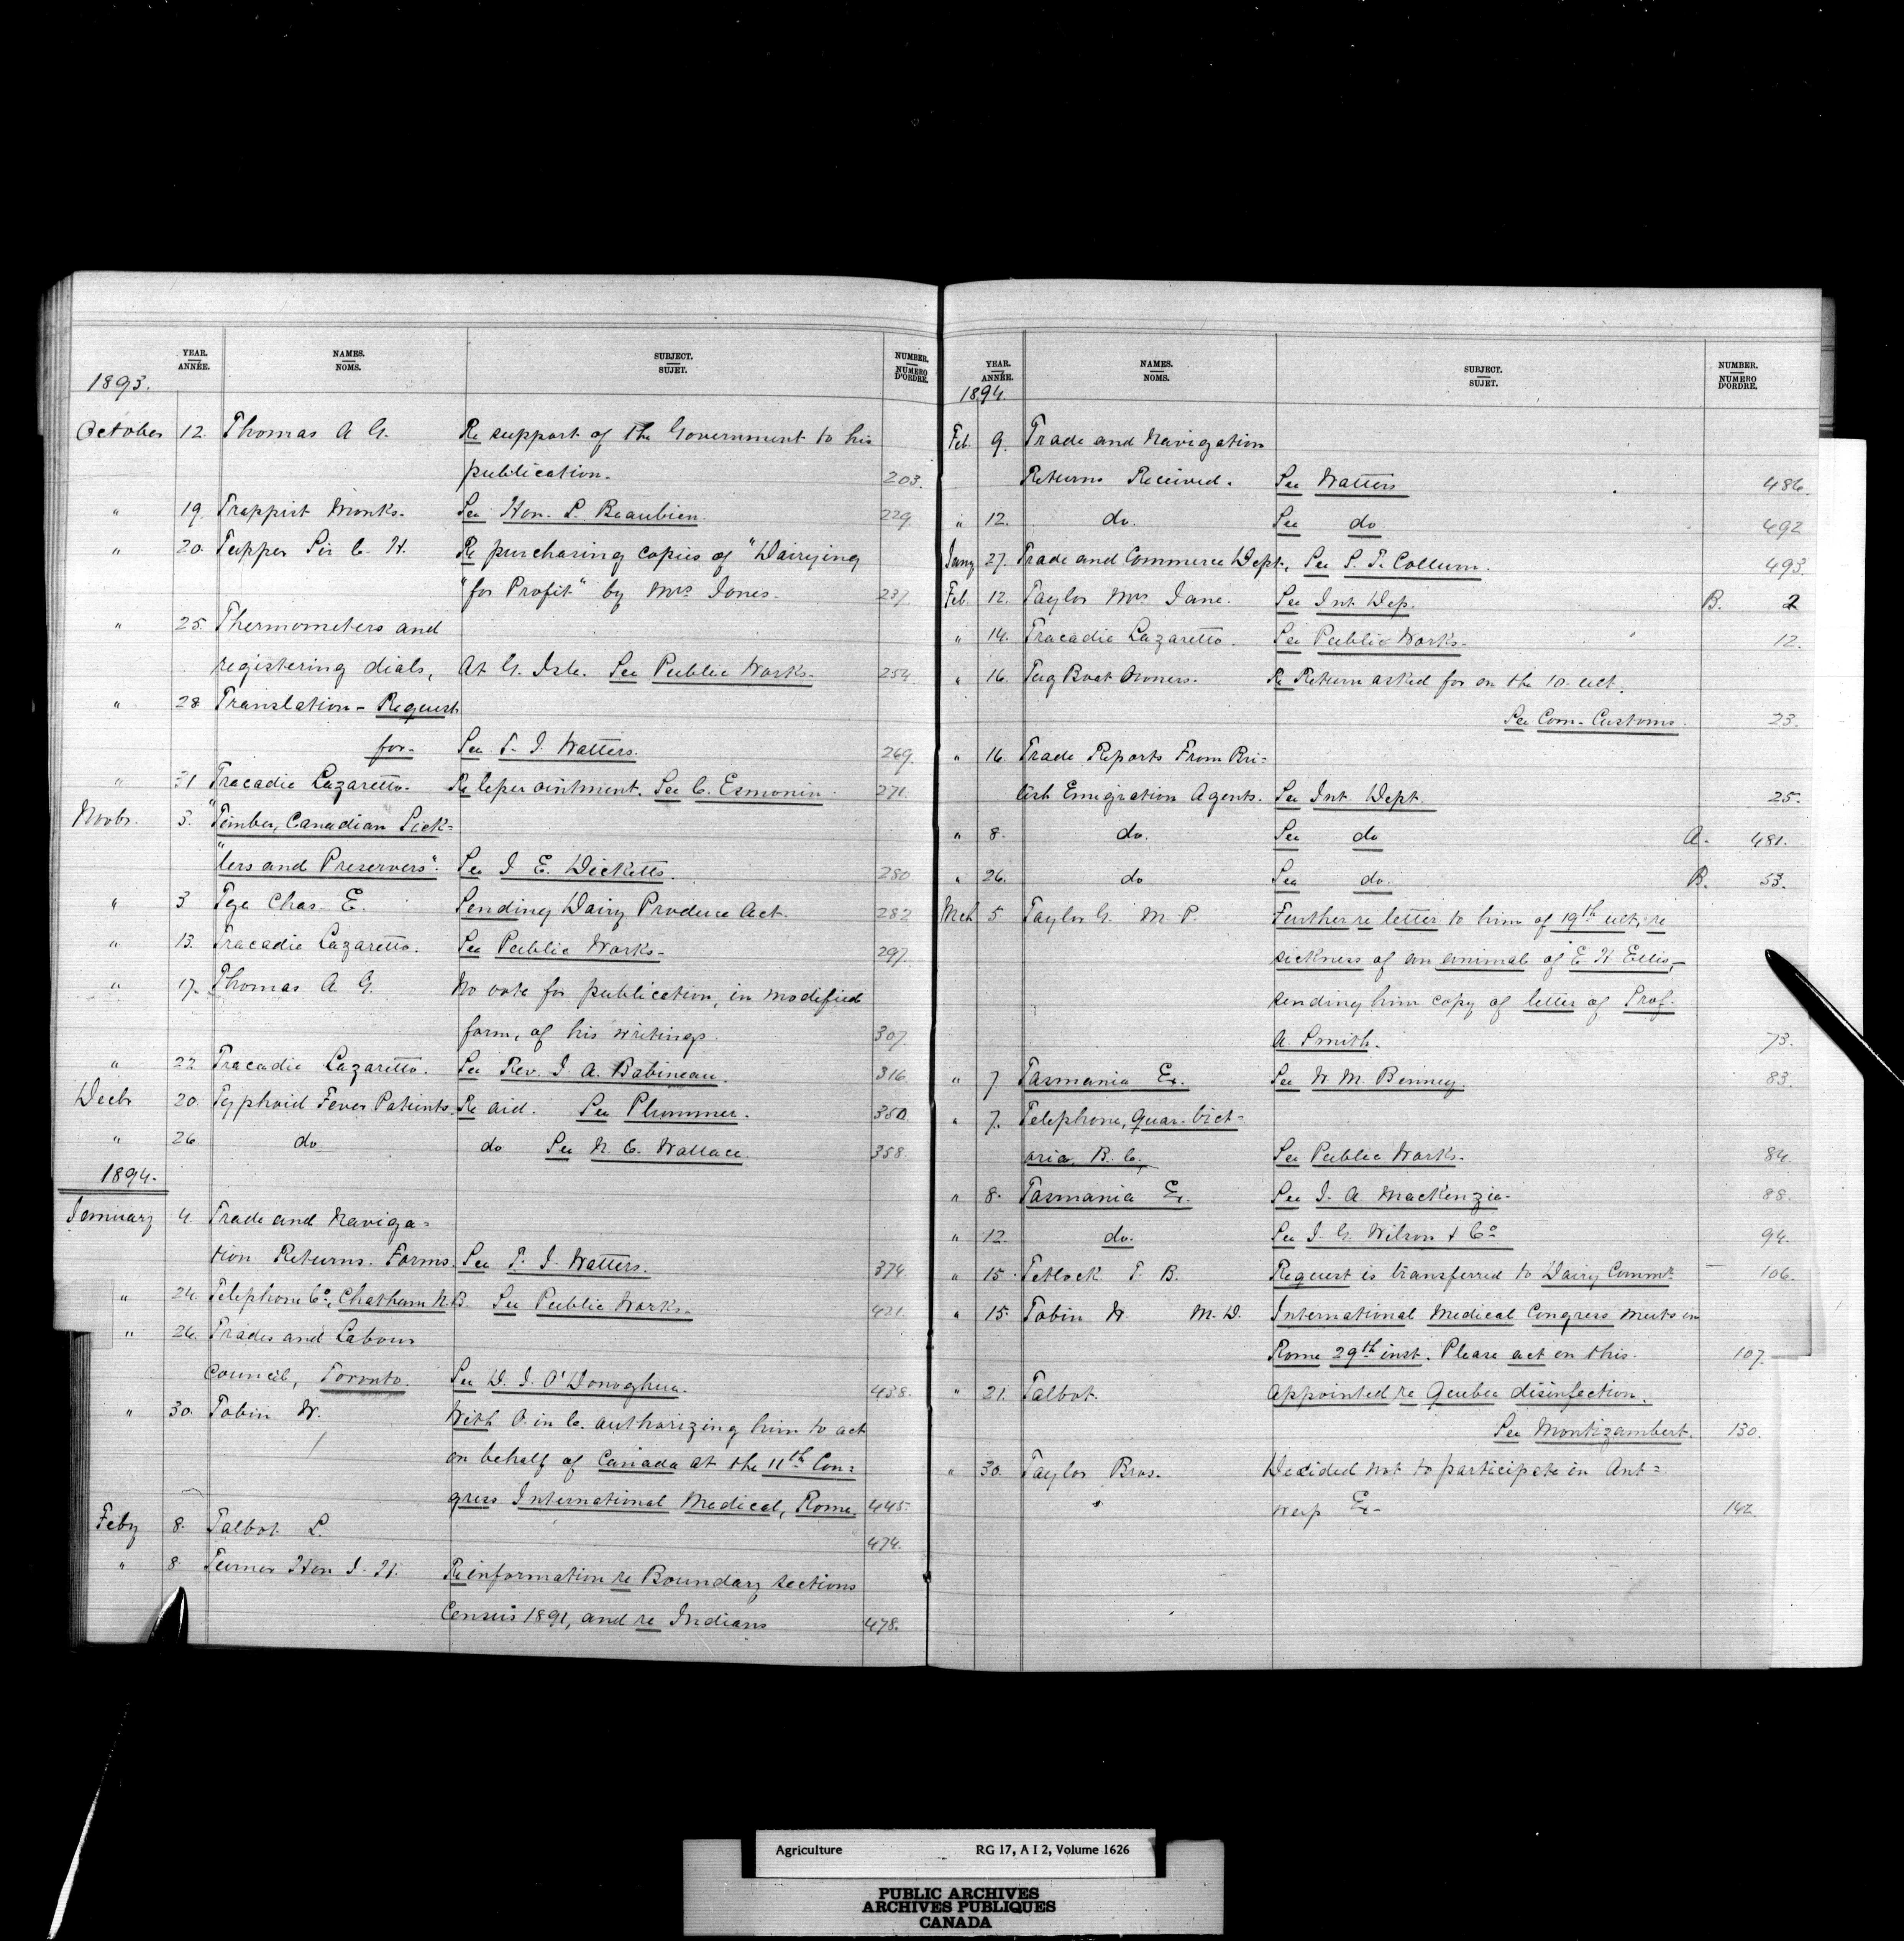 YEAR. ANNÉE. NAMES. NOMS. SUBJECT. SUJET. NUMBER. NUMERO D'ORDRE.
1893.
October 12. Thomas A G. Re support of the Government to his
publication. 203.
" 19. Trappist Monks. See Hon. L. Beaubien. 229
" 20. Tupper Sir C. H. Re purchasing copies of "Dairying
"for Profit" by Mrs Jones. 237
" 25. Thermometers and
registering dials, At G. Isle. See Public Works. 254
" 28 Translation - Request
for- See T. J. Watters. 269.
" 31 Tracadie Lazaretto. Re leper ointment. See C. Esmonin. 271.
Novbr. 3. "Timber, Canadian Pick=
"lers and Preservers". See J E. Dicketts. 280
" 3 Tye Chas. E. Sending Dairy Produce Act. 282
" 13. Tracadie Lazaretto. See Public Works- 297.
" 17. Thomas A G. No vote for publication, in modified
form, of his writings. 307
" 22 Tracadie Lazaretto. See Rev. J. A. Babineau. 316.
Decbr 20. Typhoid Fever Patients. Re aid. See Plummer. 350.
" 26 do do See N. C. Wallace. 358.
1894.
January 4. Trade and Naviga=
tion Returns. Forms. See T. J. Watters. 374
" 24. Telephone Co, Chatham N.B. See Public Works. 421.
" 26. Trades and Labour
Council, Toronto. See D. J. O'Donoghue. 438.
" 30. Tobin W. With O. in C. authorizing him to act
on behalf of Canada at the 11th Con=
gress International Medical, Rome. 445.
Feby 8. Talbot L. 474.
" 8. Turner Hon J. H. Re information re Boundary sections
Census 1891, and re Indians 478.
YEAR. ANNÉE. NAMES. NOMS. SUBJECT. SUJET. NUMBER. NUMERO D'ORDRE.
1894.
Feb. 9. Trade and Navigation
Returns Received. See Watters 486.
" 12. do. See do 492
Jany 27. Trade and Commerce Dept. See S. T. Collum. 493.
Feb. 12. Taylor Mrs Jane. See Int. Dep. B. 2
" 14. Tracadie Lazaretto. See Public Works. " 12.
" 16. Tug Boat Owners. Re Return asked for on the 10. ult.
See Com. Customs. 23.
" 16. Trade Reports From Bri=
tish Emigration Agents. See Int. Dept. 25.
" 8. do. See do A. 481.
" 26. do See do. B. 53.
Mch 5 Taylor G. M. P. Further re letter to him of 19th ult, re
sickness of an animal of E. H Ellis,-
sending him copy of letter of Prof.
A. Smith. 73.
" 7 Tasmania Ex. See W. M. Benney. 83.
" 7. Telephone, Quar. Vict-
oria, B. C. See Public Works. 84.
" 8. Tasmania Ex. See J. A. MacKenzie. 88.
" 12. do. See J. G. Wilson & Co 94.
" 15. Tetlock T. B. Request is transferred to Dairy Commr. 106.
" 15. Tobin W. M. D. International Medical Congress meets in
Rome 29th inst. Please act on this. 107.
" 21. Talbot. Appointed re Quebec disinfection.
See Montizambert. 130.
" 30. Taylor Bros. Decided not to participate in Ant=
werp Ex- 142.
Agriculture RG 17, A I 2, Volume 1626
PUBLIC ARCHIVES
ARCHIVES PUBLIQUES
CANADA